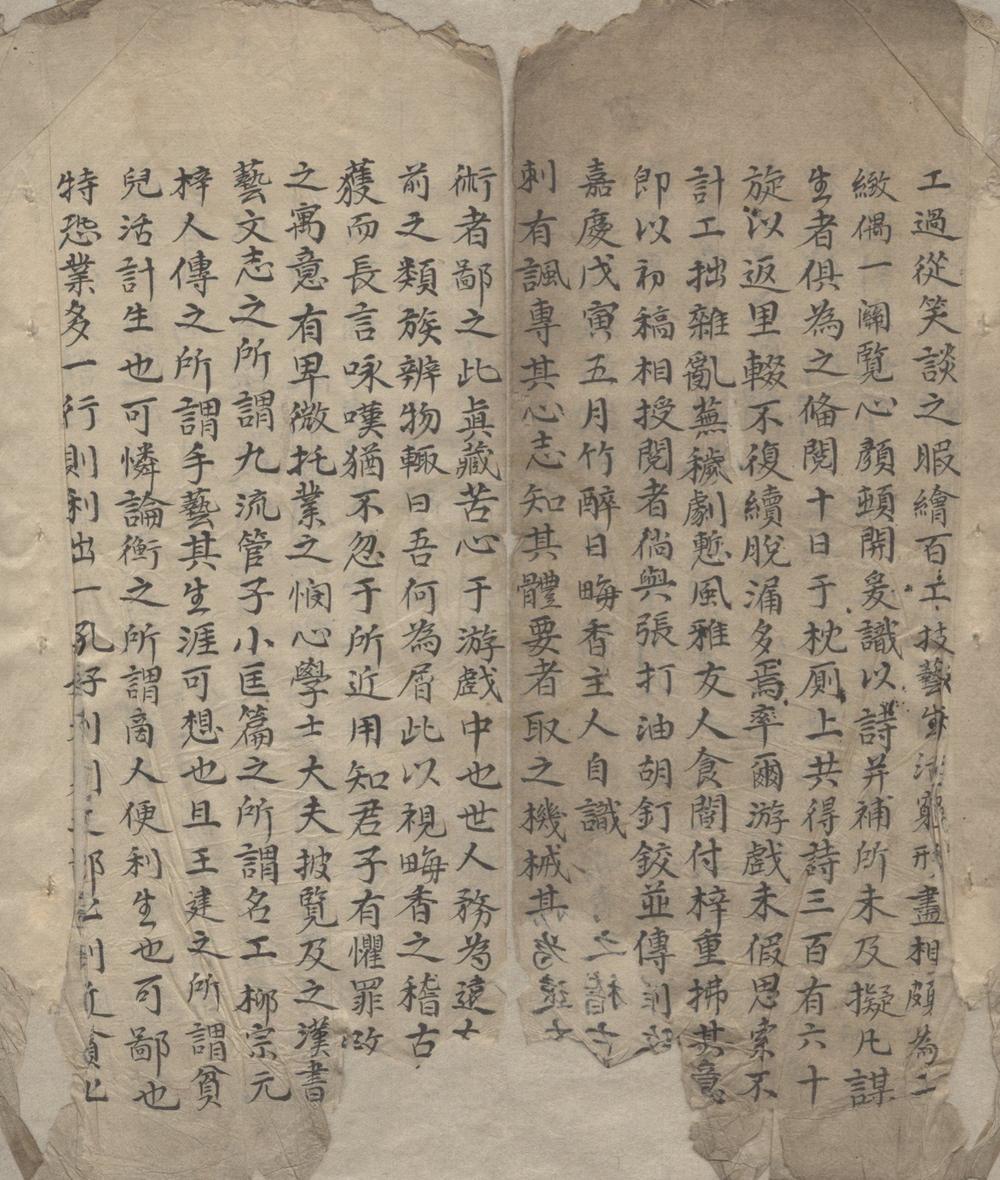 工過從笑談之暇繪百工技藝生活窮形盡相頗為工
緻偶一澖覧心顏頓開爰識以詩并補所未及擬凢謀
生者俱為之俻閲十日于枕厠上共得詩三百有六十
旋以返里輟不復續脫漏多焉率爾游戲未假思索不
計工拙雜亂蕪穢劇慙風雅友人食閽付梓重拂其意
即以初稿相授閱者徜與張打油胡釘鉸並傳
嘉慶戊寅五月竹醉日晦香主人自識
刺有諷專其心志知其體要者取之機械其
術者鄙之此真藏苦心于游戲中也世人務為遠
前之類族辨物輙曰吾何為屑此以視晦香之稽古
蠖而長言咏嘆猶不忽于所近用知君子有懼罪
之寓意有卑微托業之悯心學士大夫披覽及之漢書
藝文志之所謂九流管子小匡篇之所謂名工柳宗元
梓人傳之所謂手藝其生涯可想也且王建之所謂貧
兒活計生也可憐論衡之所謂商人便利生也可鄙也
特恐業多一行則利出一孔好利